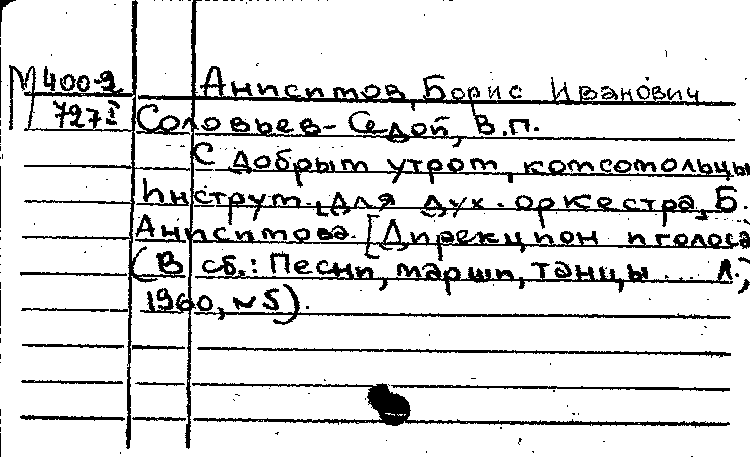 М 400-2 Анисимов, Борис Иванович
727 I Соловьев-Седой, В.П.
С добрым утром, комсомольцы
Инструм. для дух. оркестра, Б.
Анисимова. [Дирекцион и голоса
(В сб.: Песни, марши, танцы... Л.,
1960, №5).